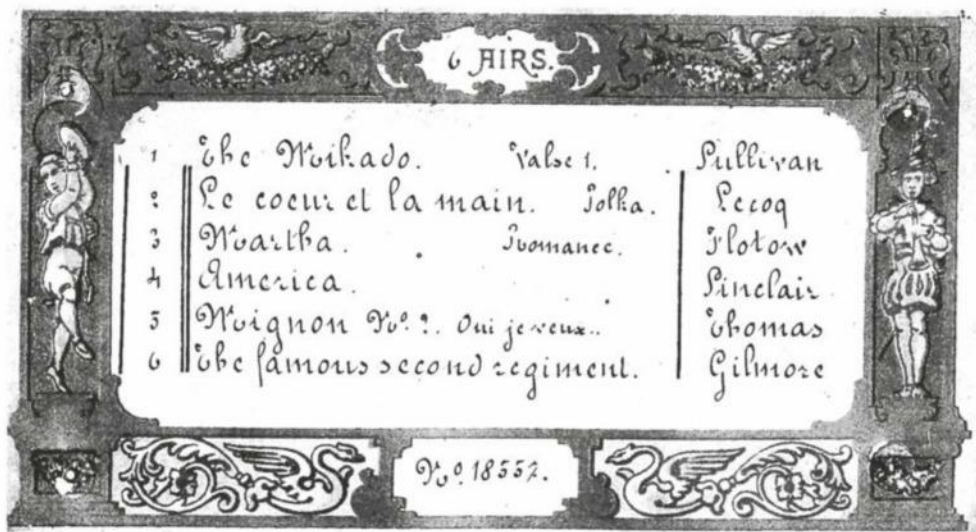 6 AIRS.
1 The Mikado. Valse 1. Sullivan
2 Le coeur et la main. Polka. Lecoq
3 Martha. Romance. Flotow
4 America. Sinclair
5 Mignon No. 2. Oui je veux.. Thomas
6 The famous second regiment. Gilmore
No. 18557.